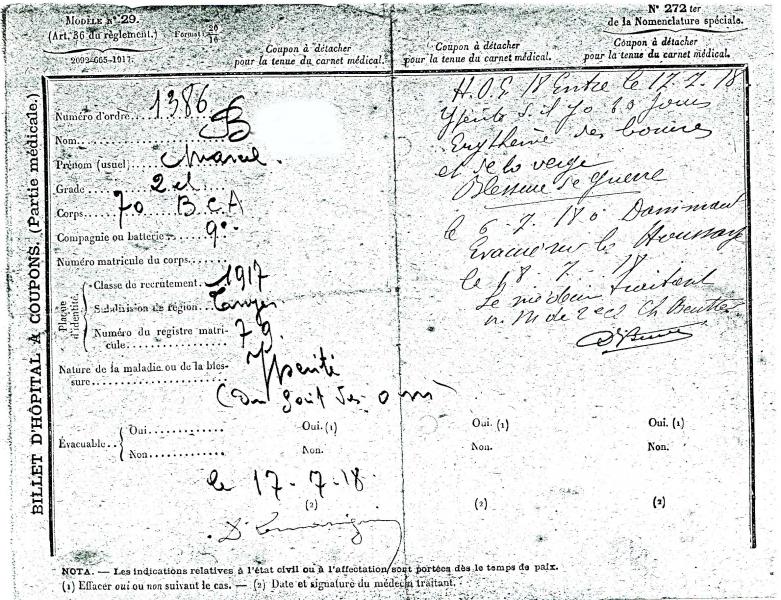 MODÈLE N° 29.
(Art. 36 du règlement.)
Format 20/16
2092-665-1917.
Coupon à détacher
pour la tenue du carnet médical.
Coupon à détacher
pour la tenue du carnet médical.
N° 272 ter
de la Nomenclature spéciale.
Coupon à détacher
pour la tenue du carnet médical.
BILLET D'HÔPITAL A COUPONS. (Partie médicale.)
Numéro d'ordre 1386
Nom B
Prénom (usuel) Marcel.
Grade 2 cl
Corps 70 BCA
Compagnie ou batterie 9e
Numéro matricule du corps
Plaque d'identité.
Classe de recrutement 1917
Subdivision de région
Numéro du registre matricule 79
Nature de la maladie ou de la blessure Ypérité
Évacuable
Oui
Non
Oui. (1)
Non.
Oui. (1)
Non.
Oui. (1)
Non.
le 17-7-18
(2)
(2)
(2)
H.O.E 18 Entré le 17.7.18
Ypérité il y a 10 jours
Erythème des bourses
et de la verge
Blessure de guerre
le 6.7.18 à
Evacué sur le
le 18-7-18
Le médecin traitant
NOTA. — Les indications relatives à l'état civil ou à l'affectation sont portées dès le temps de paix.
(1) Effacer oui ou non suivant le cas. — (2) Date et signature du médecin traitant.